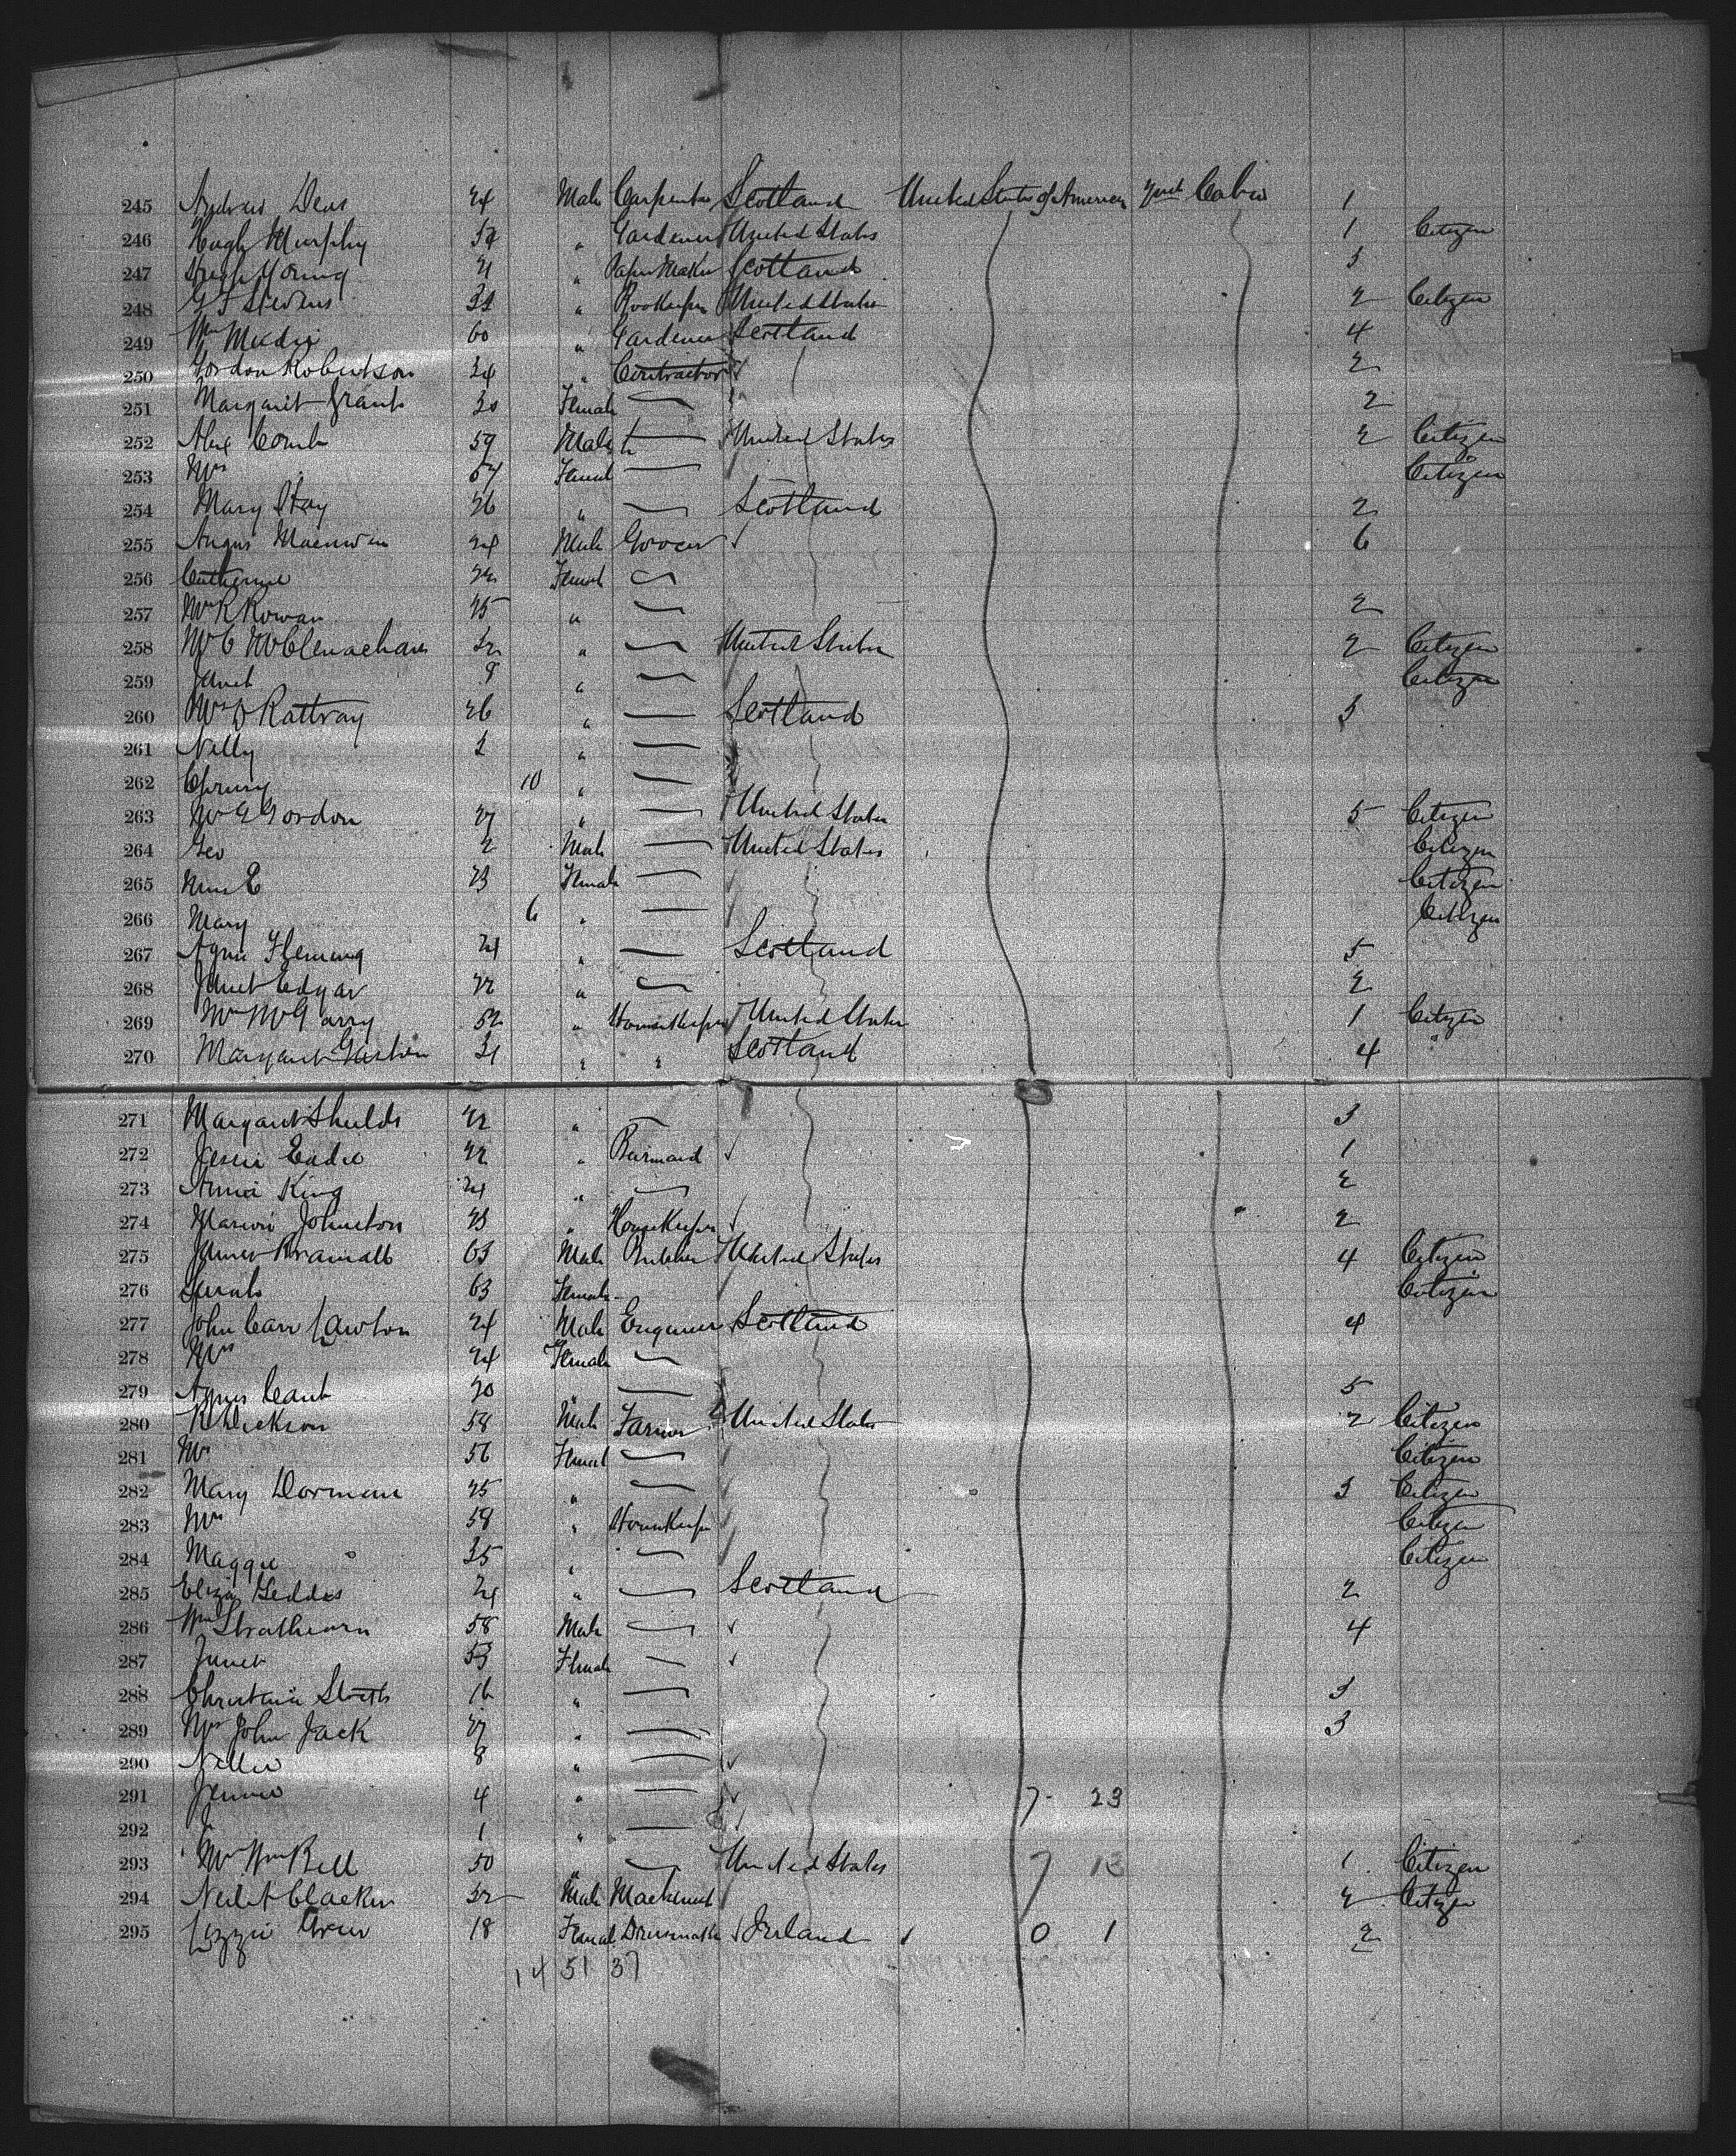 245 Andrew Deas 24 Male Carpenter Scotland United States of America 2nd Cabin 1
246 Hugh Murphy 54 " Gardener United States 1 Citizen
247 Hugh Young 21 " Paper Maker Scotland 3
248 G F Stevens 32 " Bookkeeper United States 2 Citizen
249 Wm 60 " Gardener Scotland 4
250 Gordon Robertson 24 " Contractor 2
251 Margaret Grant 30 Female — 2
252 Alex Comb 59 Male — United States 2 Citizen
253 Mrs 54 Female — Citizen
254 Mary Hay 26 " — Scotland 2
255 Angus 24 Male Grocer 6
256 Catherine 22 Female —
257 Mrs R Rowan 25 " — 2
258 Mrs C McClenachan 32 " — United States 2 Citizen
259 Janet 9 " — Citizen
260 Mrs D Rattray 26 " — Scotland 3
261 Nelly 2 " —
262 10 " —
263 Mrs G Gordon 27 " — United States 5 Citizen
264 Geo 2 Male — United States Citizen
265 E 23 Female — Citizen
266 Mary 6 " — Citizen
267 Agnes Fleming 21 " — Scotland 5
268 Janet Edgar 22 " — 2
269 Mrs McGarry 52 " Housekeeper United States 1 Citizen
270 Margaret 31 " " Scotland 4 "
271 Margaret Shields 22 " — 3
272 Jessie Eadie 22 " Barmaid 1
273 Annie King 21 " — 2
274 Marion Johnston 23 " Housekeeper 2
275 James Bramall 63 Male United States 4 Citizen
276 Sarah 63 Female — Citizen
277 John Carr Lawton 24 Male Engineer Scotland 4
278 Mrs 24 Female —
279 Agnes Cant 20 " — 5
280 R Dickson 58 Male Farmer United States 2 Citizen
281 Mrs 56 Female — Citizen
282 Mary Dorman 25 " — 3 Citizen
283 Mrs 58 " Housekeeper Citizen
284 Maggie 35 " — Citizen
285 Eliza Geddes 21 " — Scotland 2
286 Wm Strathearn 58 Male — 4
287 Janet 53 Female —
288 Christina 16 " — 3
289 Mrs John Jack 27 " — 3
290 Nellie 8 " —
291 Jennie 4 " — 7 23
292 J 1 " —
293 Mrs Wm Bell 50 " — United States 7 13 1 Citizen
294 Neil 32 Male Machinist 2 Citizen
295 Lizzie Greer 18 Female Dressmaker Ireland 1 0 1 2
14 51 37